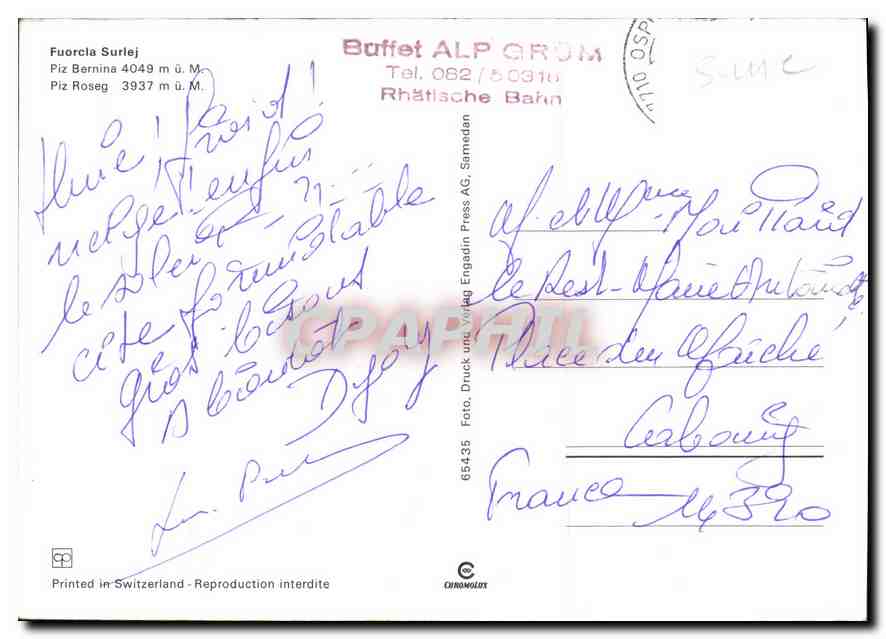 Fuorcla Surlej
Piz Bernina 4049 m ü. M.
Piz Roseg 3937 m ü. M.
Buffet ALP GRÜM
Tel. 082 / 50318
Rhätische Bahn
7710 OSP
Suisse
! froid !
neige! enfin
le soleil
formidable
gros bisous
A bientôt
M. et Mme Maillard
le Rest. Marie Antoinette
Place du Marché
Cabourg
France 14390
65435 Foto, Druck und Verlag Engadin Press AG, Samedan
CPAPHIL
cp
Printed in Switzerland - Reproduction interdite
CHROMOLUX